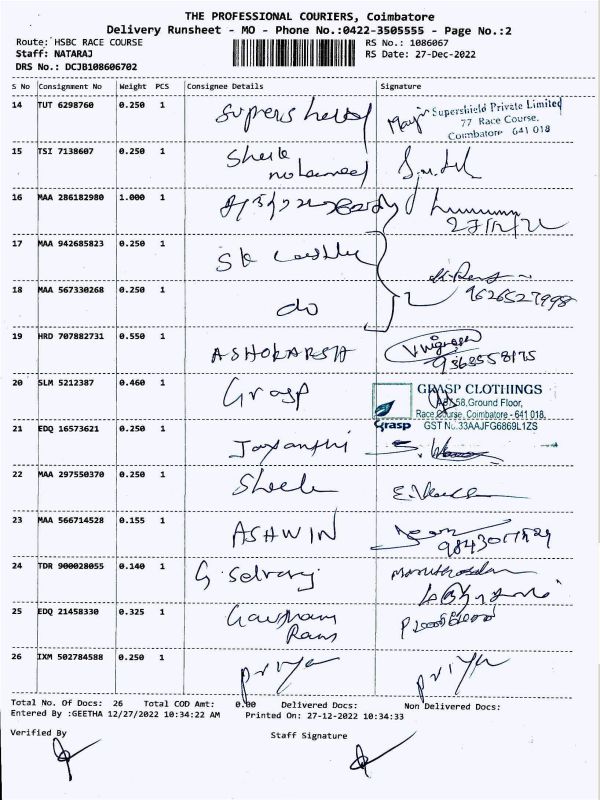 THE PROFESSIONAL COURIERS, Coimbatore
Delivery Runsheet - MO - Phone No.:0422-3505555 - Page No.:2
Route: HSBC RACE COURSE
RS No.: 1086067
Staff: NATARAJ
RS Date: 27-Dec-2022
DRS No.: DCJB108606702
S No Consignment No Weight PCS Consignee Details Signature
14 TUT 6298760 0.250 1
Supershield Private Limited
77 Race Course.
Coimbatore 641 018
15 TSI 7138607 0.250 1
16 MAA 286182980 1.000 1
27/12/22
17 MAA 942685823 0.250 1
18 MAA 567330268 0.250 1 do
9626527998
19 HRD 707882731 0.550 1
9363558175
20 SLM 5212387 0.460 1 Grasp
GRASP CLOTHINGS
58,Ground Floor,
Race Course, Coimbatore - 641 018.
Grasp GST No.33AAJFG6869L1ZS
21 EDQ 16573621 0.250 1 Jayanthi
22 MAA 297550370 0.250 1
23 MAA 566714528 0.155 1 ASHWIN
24 TDR 900028055 0.140 1 G. Selvaraj
25 EDQ 21458330 0.325 1 Gautham
Ram
26 IXM 502784588 0.250 1 priya priya
Total No. Of Docs: 26 Total COD Amt: 0.00 Delivered Docs: Non Delivered Docs:
Entered By :GEETHA 12/27/2022 10:34:22 AM Printed On: 27-12-2022 10:34:33
Verified By Staff Signature